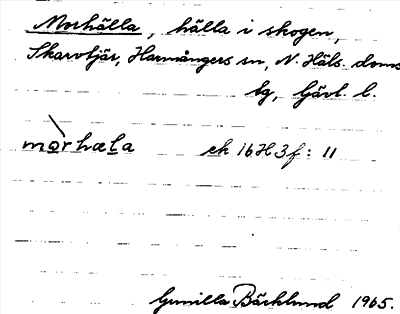 Morhälla, hälla i skogen,
Skarvtjär, Harmångers sn, N. Häls. doms
bg, Gävl. l.
mo̲rhæl̲a ek 16H3f: 11
Gunilla Bäcklund 1965.